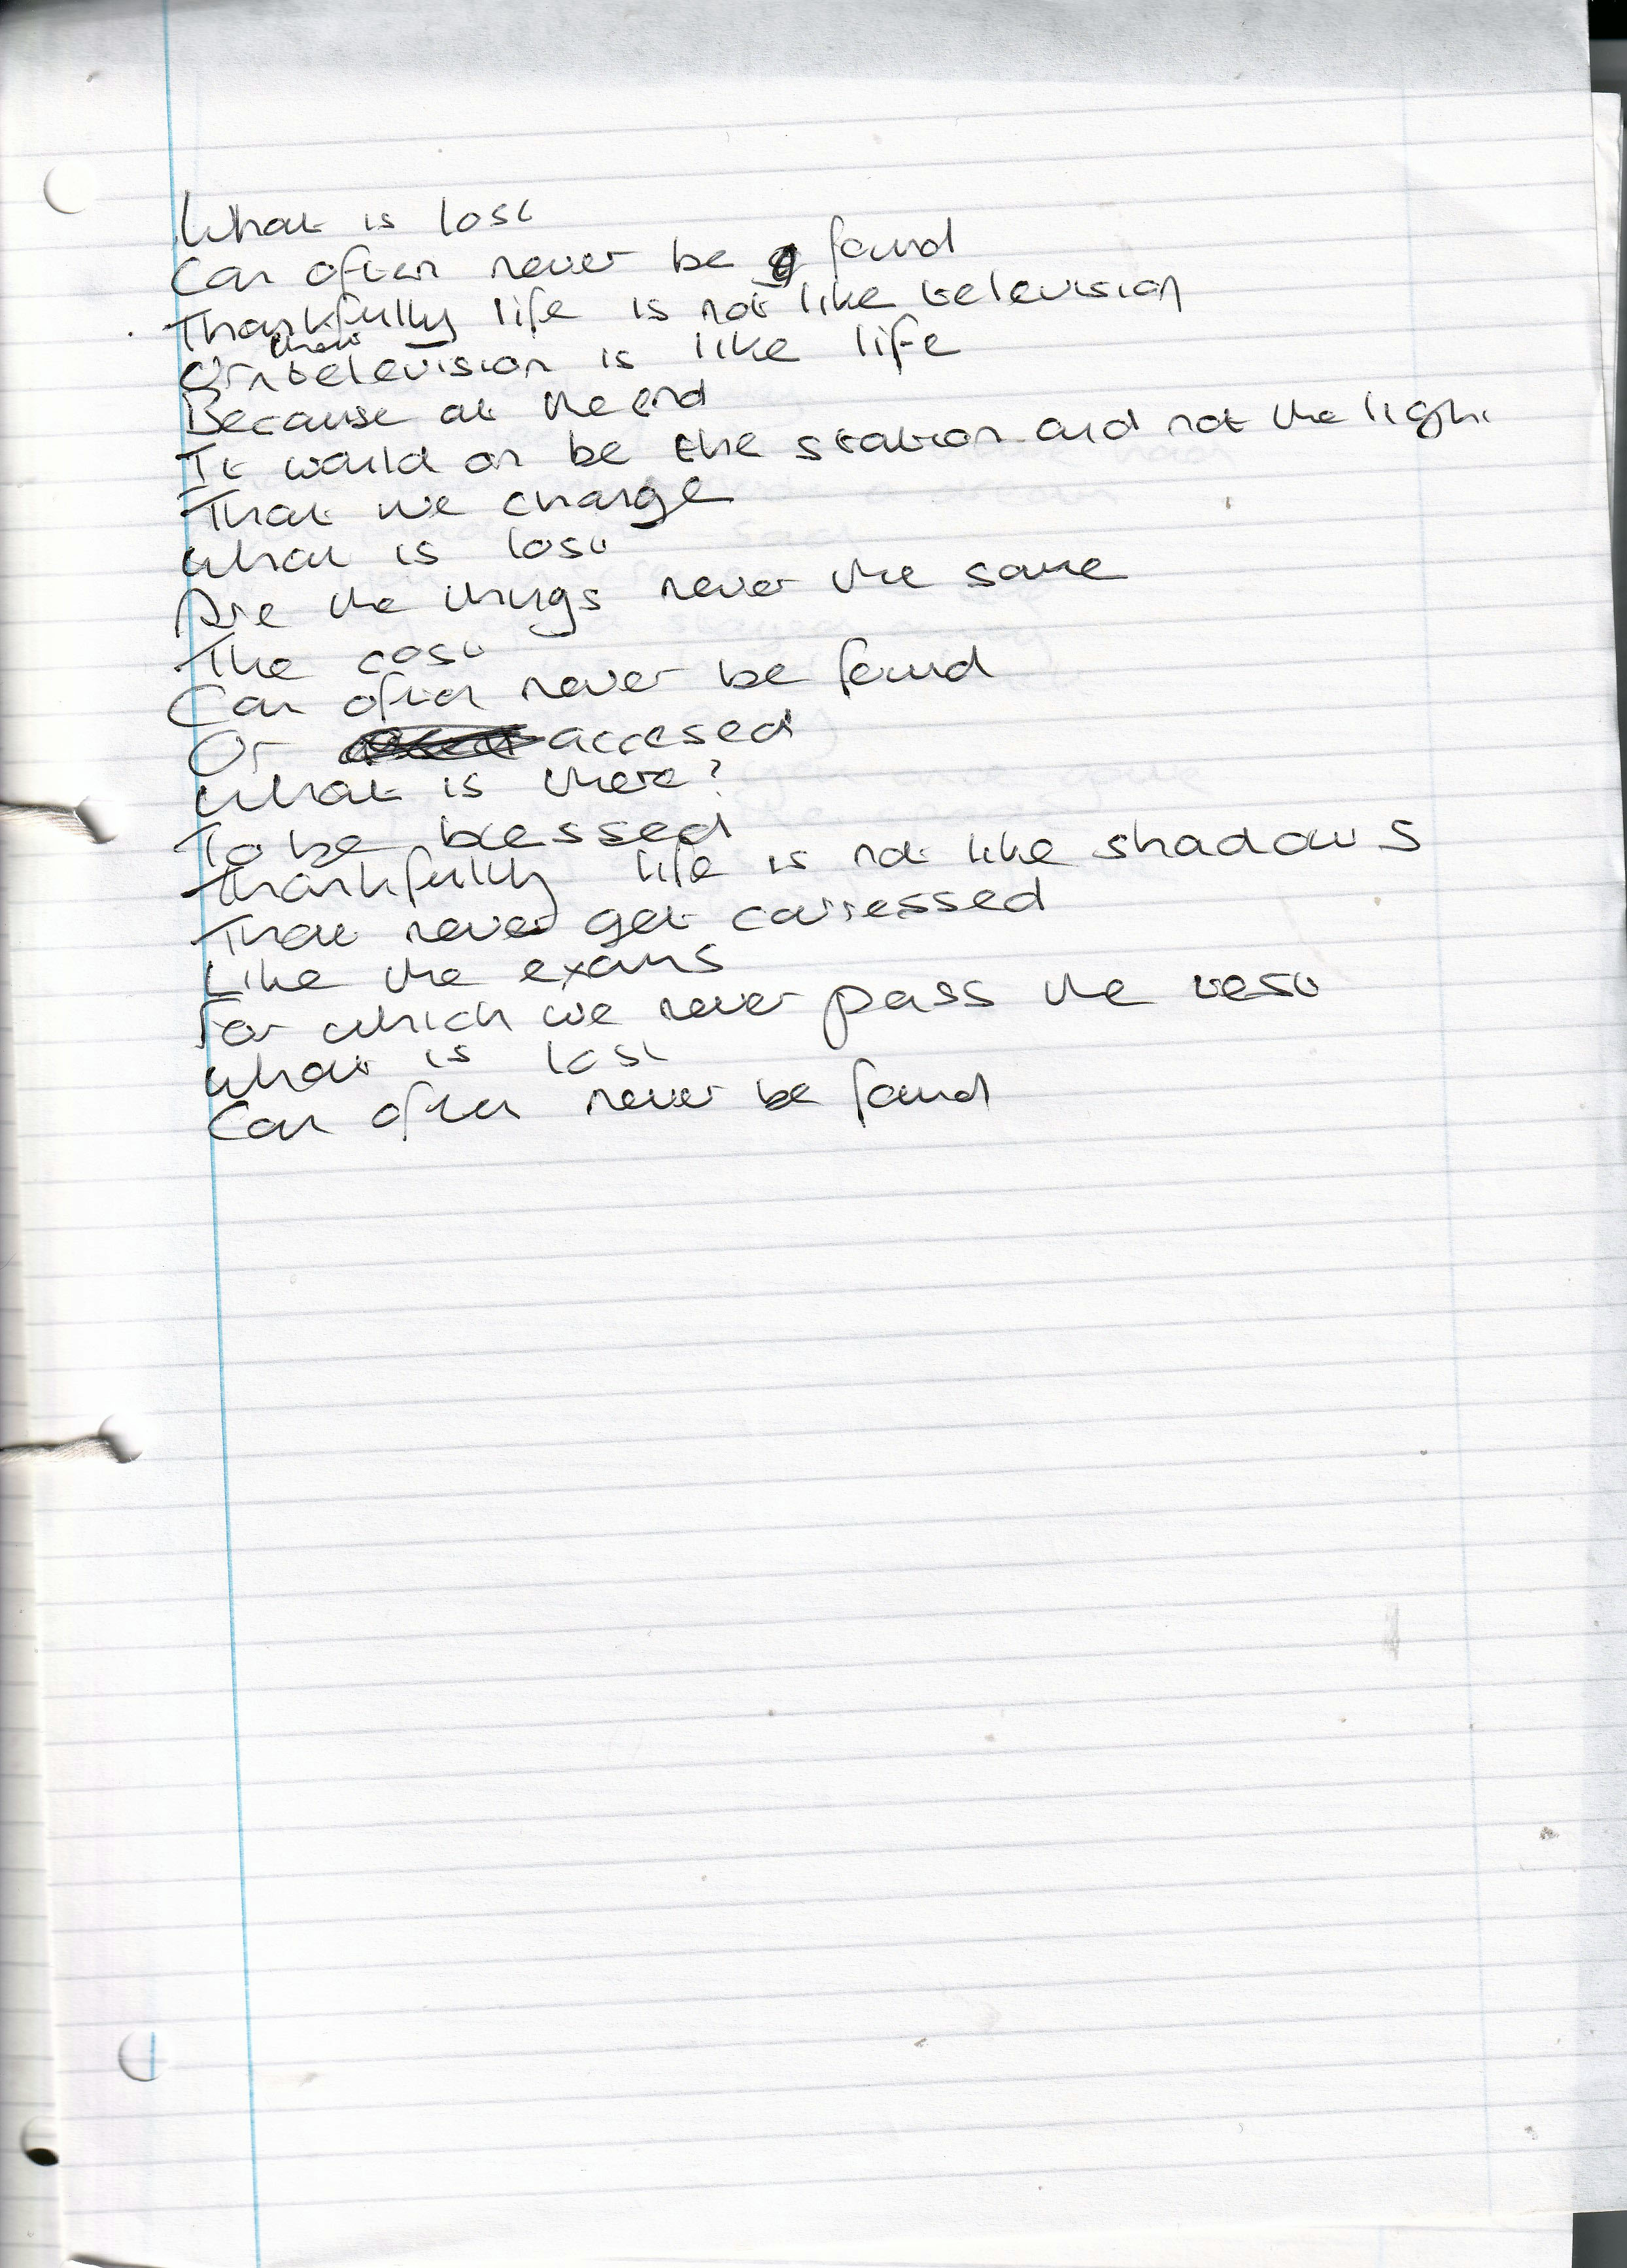 What is lost
Can often never be found
Thankfully life is not like television
Or that television is like life
Because at the end
It would on be the station and not the light
That we change
What is lost
Are the things never the same
The cost
Can often never be found
Or accesed
What is there?
To be blessed
Thankfully life is not like shadows
That never get carressed
Like the exams
For which we never pass the test
What is lost
Can often never be found